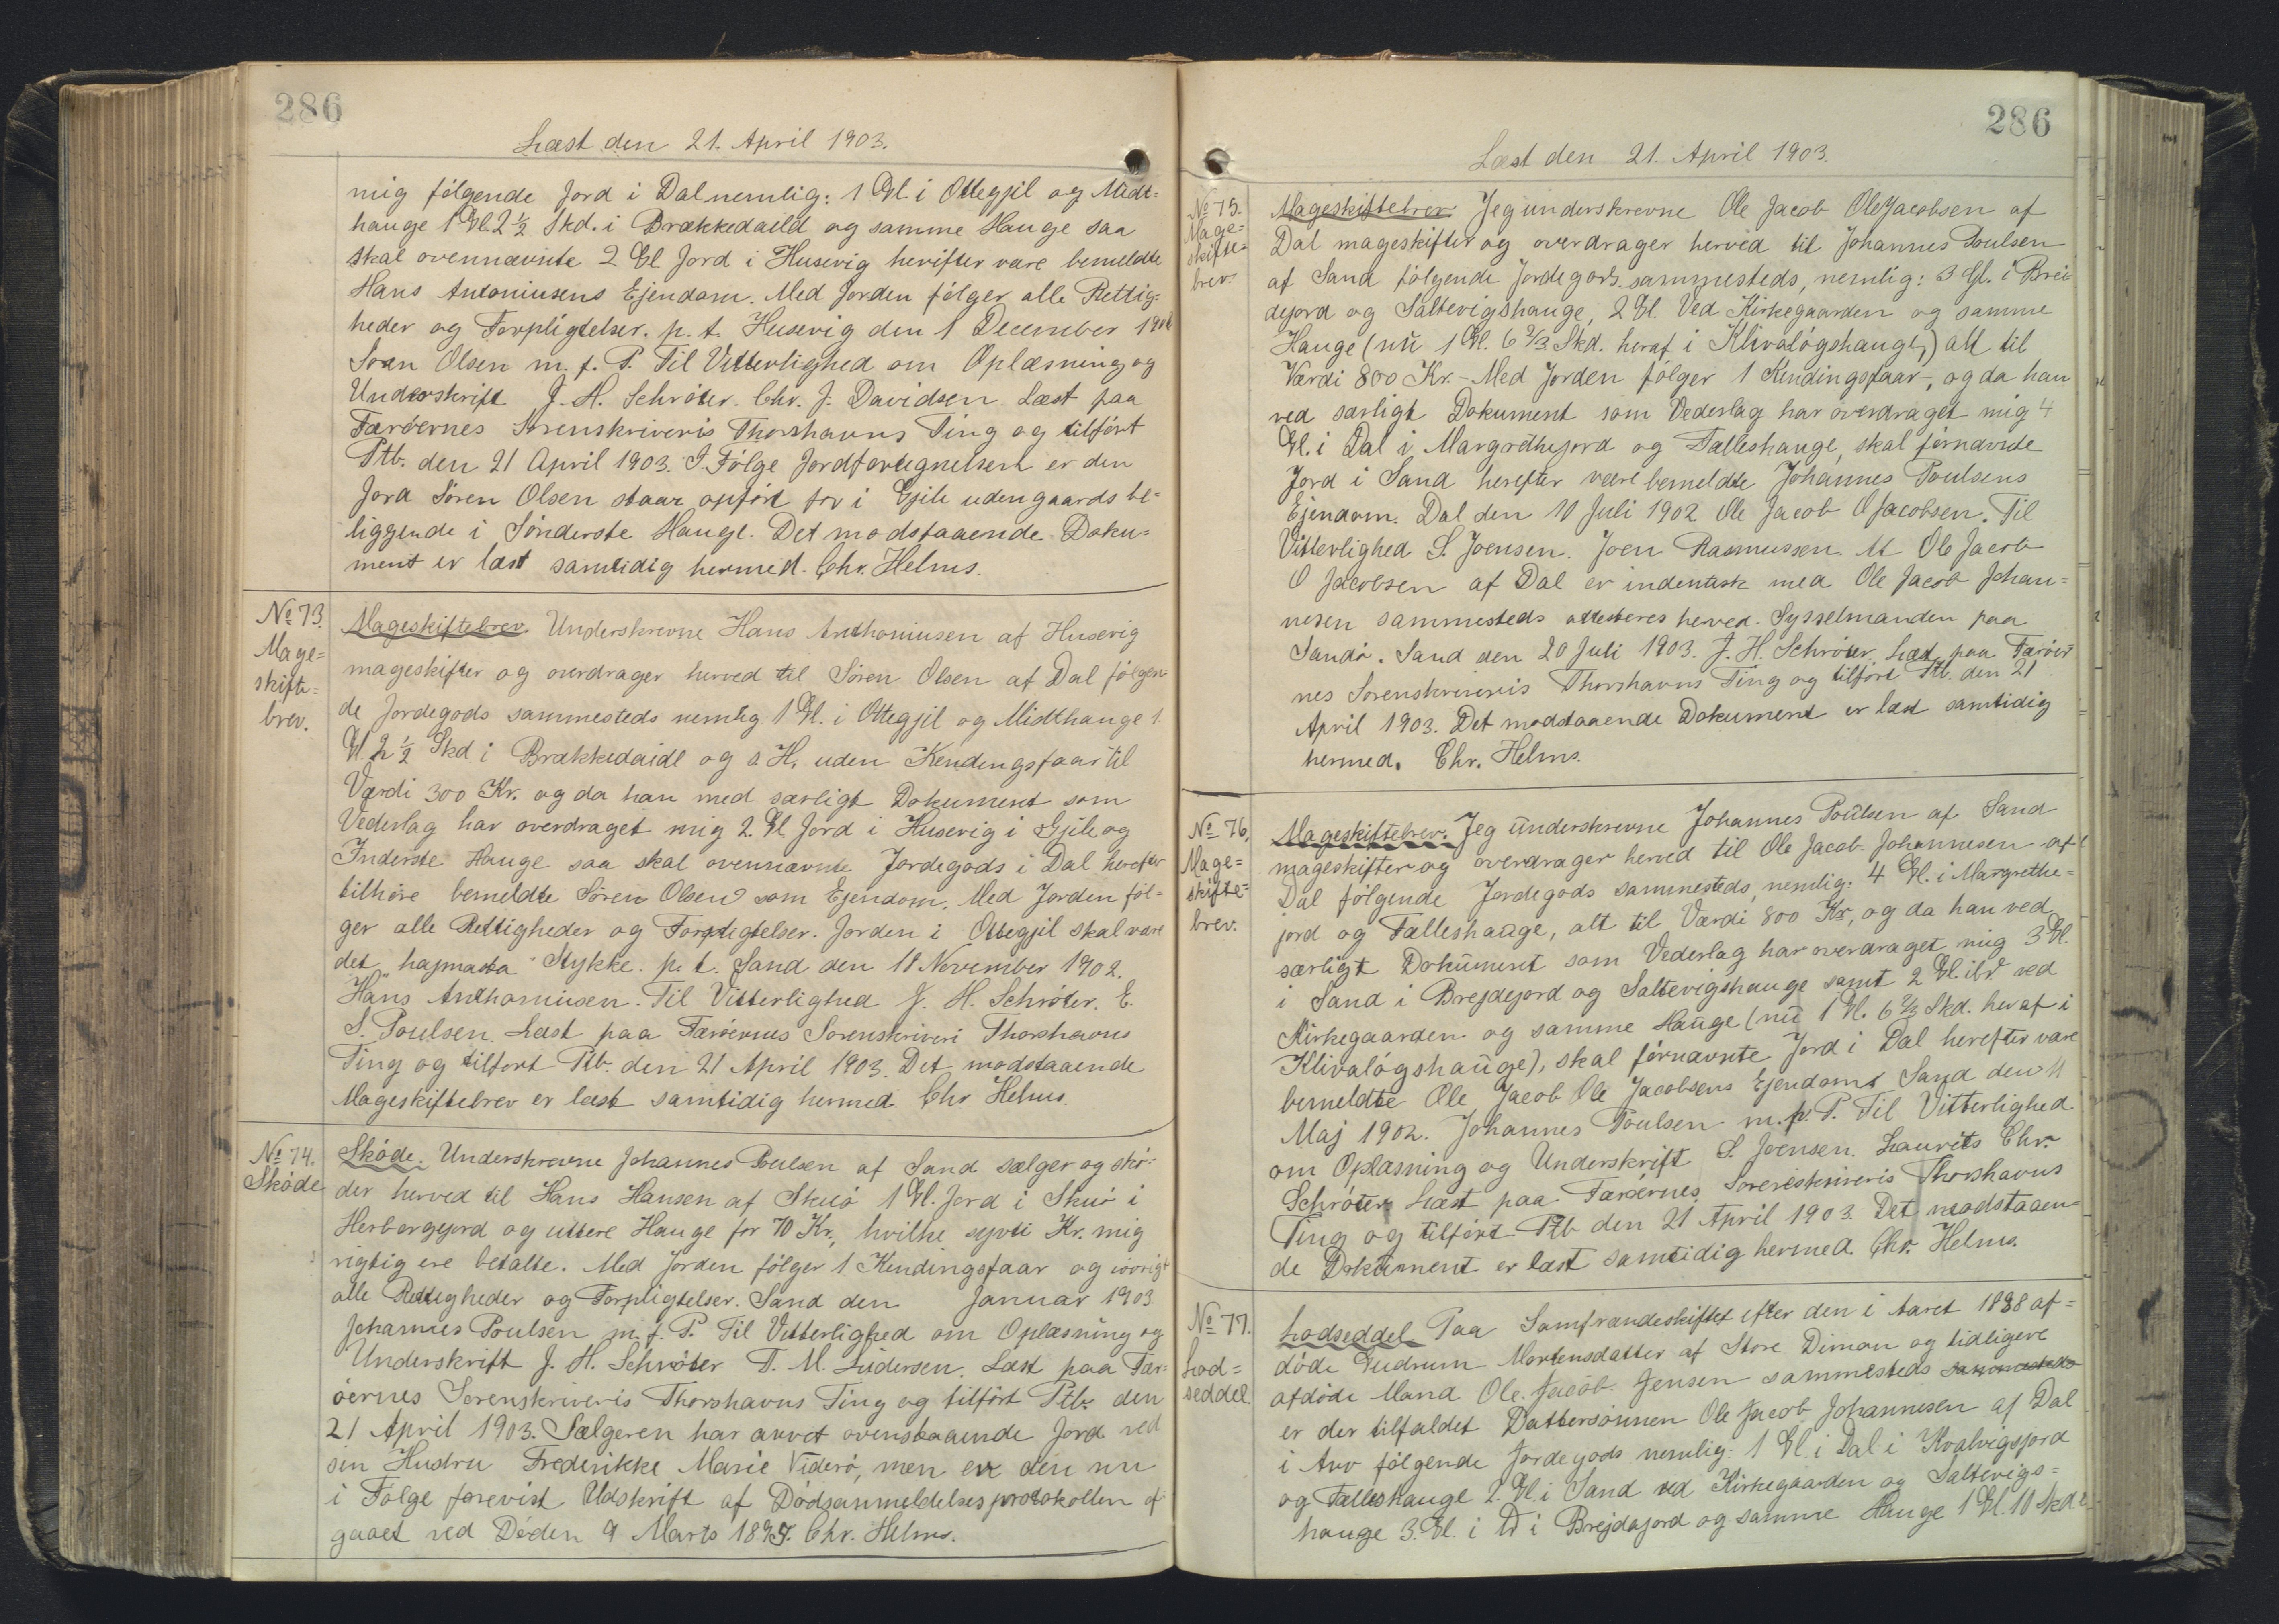 286
Læst den 21. April 1903.
mig følgende Jord i Dal nemlig: 1 Gl. i Ottegjil og Midt=
hauge 1 Gl. 2½ Skd. i Brækkedaild og samme Hauge saa
skal ovennævnte 2 Gl Jord i Husevig herifter være bemeldte
Hans Antoniusens Ejendom. Med Jorden følger alle Rettig=
heder og Forpligtelser. p. t. Husevig den 1 December
Sören Olsen m. f. P. Til Vitterlighed om Oplæsning og
Underskrift J. H. Schröter. Chr. J. Davidsen. Læst paa
Færöernes Sorenskriveris Thorshavns Ting og tilfört
Ptb. den 21 April 1903. I Følge Jordfortegnelsen er den
Jord Sören Olsen staar opfört for i Gjile udengaards be=
liggende i Sönderste Hauge. Det modstaaende Doku=
ment er læst samtidig hermed. Chr. Helms.
No 73.
Mage=
skifte=
brev.
Mageskiftebrev. Underskrevne Hans Anthoniusen af Husevig
mageskifter og overdrager herved til Sören Olsen af Dal følgen
de Jordegods sammesteds nemlig 1 Gl. i Ottegjil og Midthauge 1
Gl. 2½ Skd i Brækkedaidl og s. H. uden Kendingsfaar til
Værdi 300 Kr. og da han med særligt Dokument som
Vederlag har overdraget mig 2. Gl Jord i Husevig i Gjile og
Inderste Hauge saa skal ovennævnte Jordegods i Dal herefter
tilhöre bemeldte Sören Olsen som Ejendom. Med Jorden föl=
ger alle Rettigheder og Forpligtelser. Jorden i Ottegjil skal være
det "hajmasta" Stykke. p. t. Sand den 18 November 1902.
Hans Anthoniusen. Til Vitterlighed J. H. Schröter. E.
S. Poulsen. Læst paa Færöernes Sorenskriveri Thorshavns
Ting og tilfört Ptb. den 21 April 1903. Det modstaaende
Mageskiftebrev er læst samtidig hermed. Chr Helms.
No 74.
Sköde
Sköde. Underskrevne Johannes Poulsen af Sand sælger og skö=
der herved til Hans Hansen af Skuö 1 Gl. Jord i Skuö i
Herbergejord og uttere Hauge for 70 Kr., hvilke syvti Kr. mig
rigtig ere betalte. Med Jorden følger 1 Kendingsfaar og iövrigt
alle Rettigheder og Forpligtelser. Sand den Januar 1903
Johannes Poulsen m. f. P. Til Vitterlighed om Oplæsning og
Underskrift J. H. Schröter T. M. Lüdersen. Læst paa Fær=
öernes Sorenskriveris Thorshavns Ting og tilfört Ptb. den
21 April 1903. Sælgeren har arvet ovenstaaende Jord ved
sin Hustru Frederikke Marie Viderö, men er den nu
i Følge forevist Udskrift af Dödsanmeldelsesprotokollen af
gaaet ved Döden 9 Marts Chr. Helms.
286
Læst den 21. April 1903.
No 75.
Mage=
skifte=
brev.
Mageskiftebrev Jeg underskrevne Ole Jacob OleJacobsen af
Dal mageskifter og overdrager herved til Johannes Poulsen
af Sand følgende Jordegods sammesteds, nemlig: 3 Gl. i Brei
dejord og Saltevigshauge, 2 Gl. Ved Kirkegaarden og samme
Hauge (nu 1 Gl. 6 2/3 Skd. heraf i Klivalógshauge,) alt til
Værdi 800 Kr. - Med Jorden følger 1 Kendingsfaar -, og da han
ved særligt Dokument som Vederlag har overdraget mig 4
Gl. i Dal i Margrethejord og Fælleshauge, skal förnævnte
Jord i Sand herefter være bemeldte Johannes Poulsens
Ejendom. Dal den 10 Juli 1902 Ole Jacob OJacobsen. Til
Vitterlighed S. Joensen. Joen Rasmussen. At Ole Jacob
O Jacobsen af Dal er indentisk med Ole Jacob Johan=
nesen sammesteds attesteres herved. Sysselmanden paa
Sandö. Sand den 20 Juli 1903. J. H. Schröter. Læst paa Færöer
nes Sorenskriveris Thorshavns Ting og tilfört Ptb. den 21
April 1903. Det modstaaende Dokument er læst samtidig
hermed. Chr. Helms.
No 76.
Mage=
skifte=
brev.
Mageskiftebrev. Jeg underskrevne Johannes Poulsen af Sand
mageskifter og overdrager herved til Ole Jacob Johannesen af
Dal følgende Jordegods sammesteds, nemlig: 4 Gl. i Margrethe=
jord og Fælleshauge, alt til Værdi 800 Kr, og da han ved
særligt Dokument som Vederlag har overdraget mig 3 Gl.
i Sand i Brejdejord og Saltevigshauge samt 2 Gl. ibd ved
Kirkegaarden og samme Hauge (nu 1 Gl. 6 2/3 Skd. heraf i
Klivalógshauge), skal förnævnte Jord i Dal herefter være
bemeldte Ole Jacob Ole Jacobsens Ejendom. Sand den 11
Maj 1902. Johannes Poulsen m. f. P. Til Vitterlighed
om Oplæsning og Underskrift S. Joensen. Laurits Chr.
Schröter. Læst paa Færöernes Sorenskriveris Thorshavns
Ting og tilfört Ptb den 21 April 1903. Det modstaaen
de Dokument er læst samtidig hermed. Chr. Helms.
No 77.
Lod=
seddel.
Lodseddel Paa Samfrændeskiftet efter den i Aaret 1888 af=
døde Gudrum Mortensdatter af Store Dimon og tidligere
afdøde Mand Ole Jacob Jensen sammesteds sammesteds
er der tilfaldet Dattersønnen Ole Jacob Johannesen af Dal
i Arv følgende Jordegods nemlig: 1 Gl. i Dal i Kvalvigsjord
og Fælleshauge 2 Gl. i Sand ved Kirkegaarden og Saltevigs=
hauge 3. Gl. i D i Brejdajord og samme Hauge 1 Gl. 10 Skd